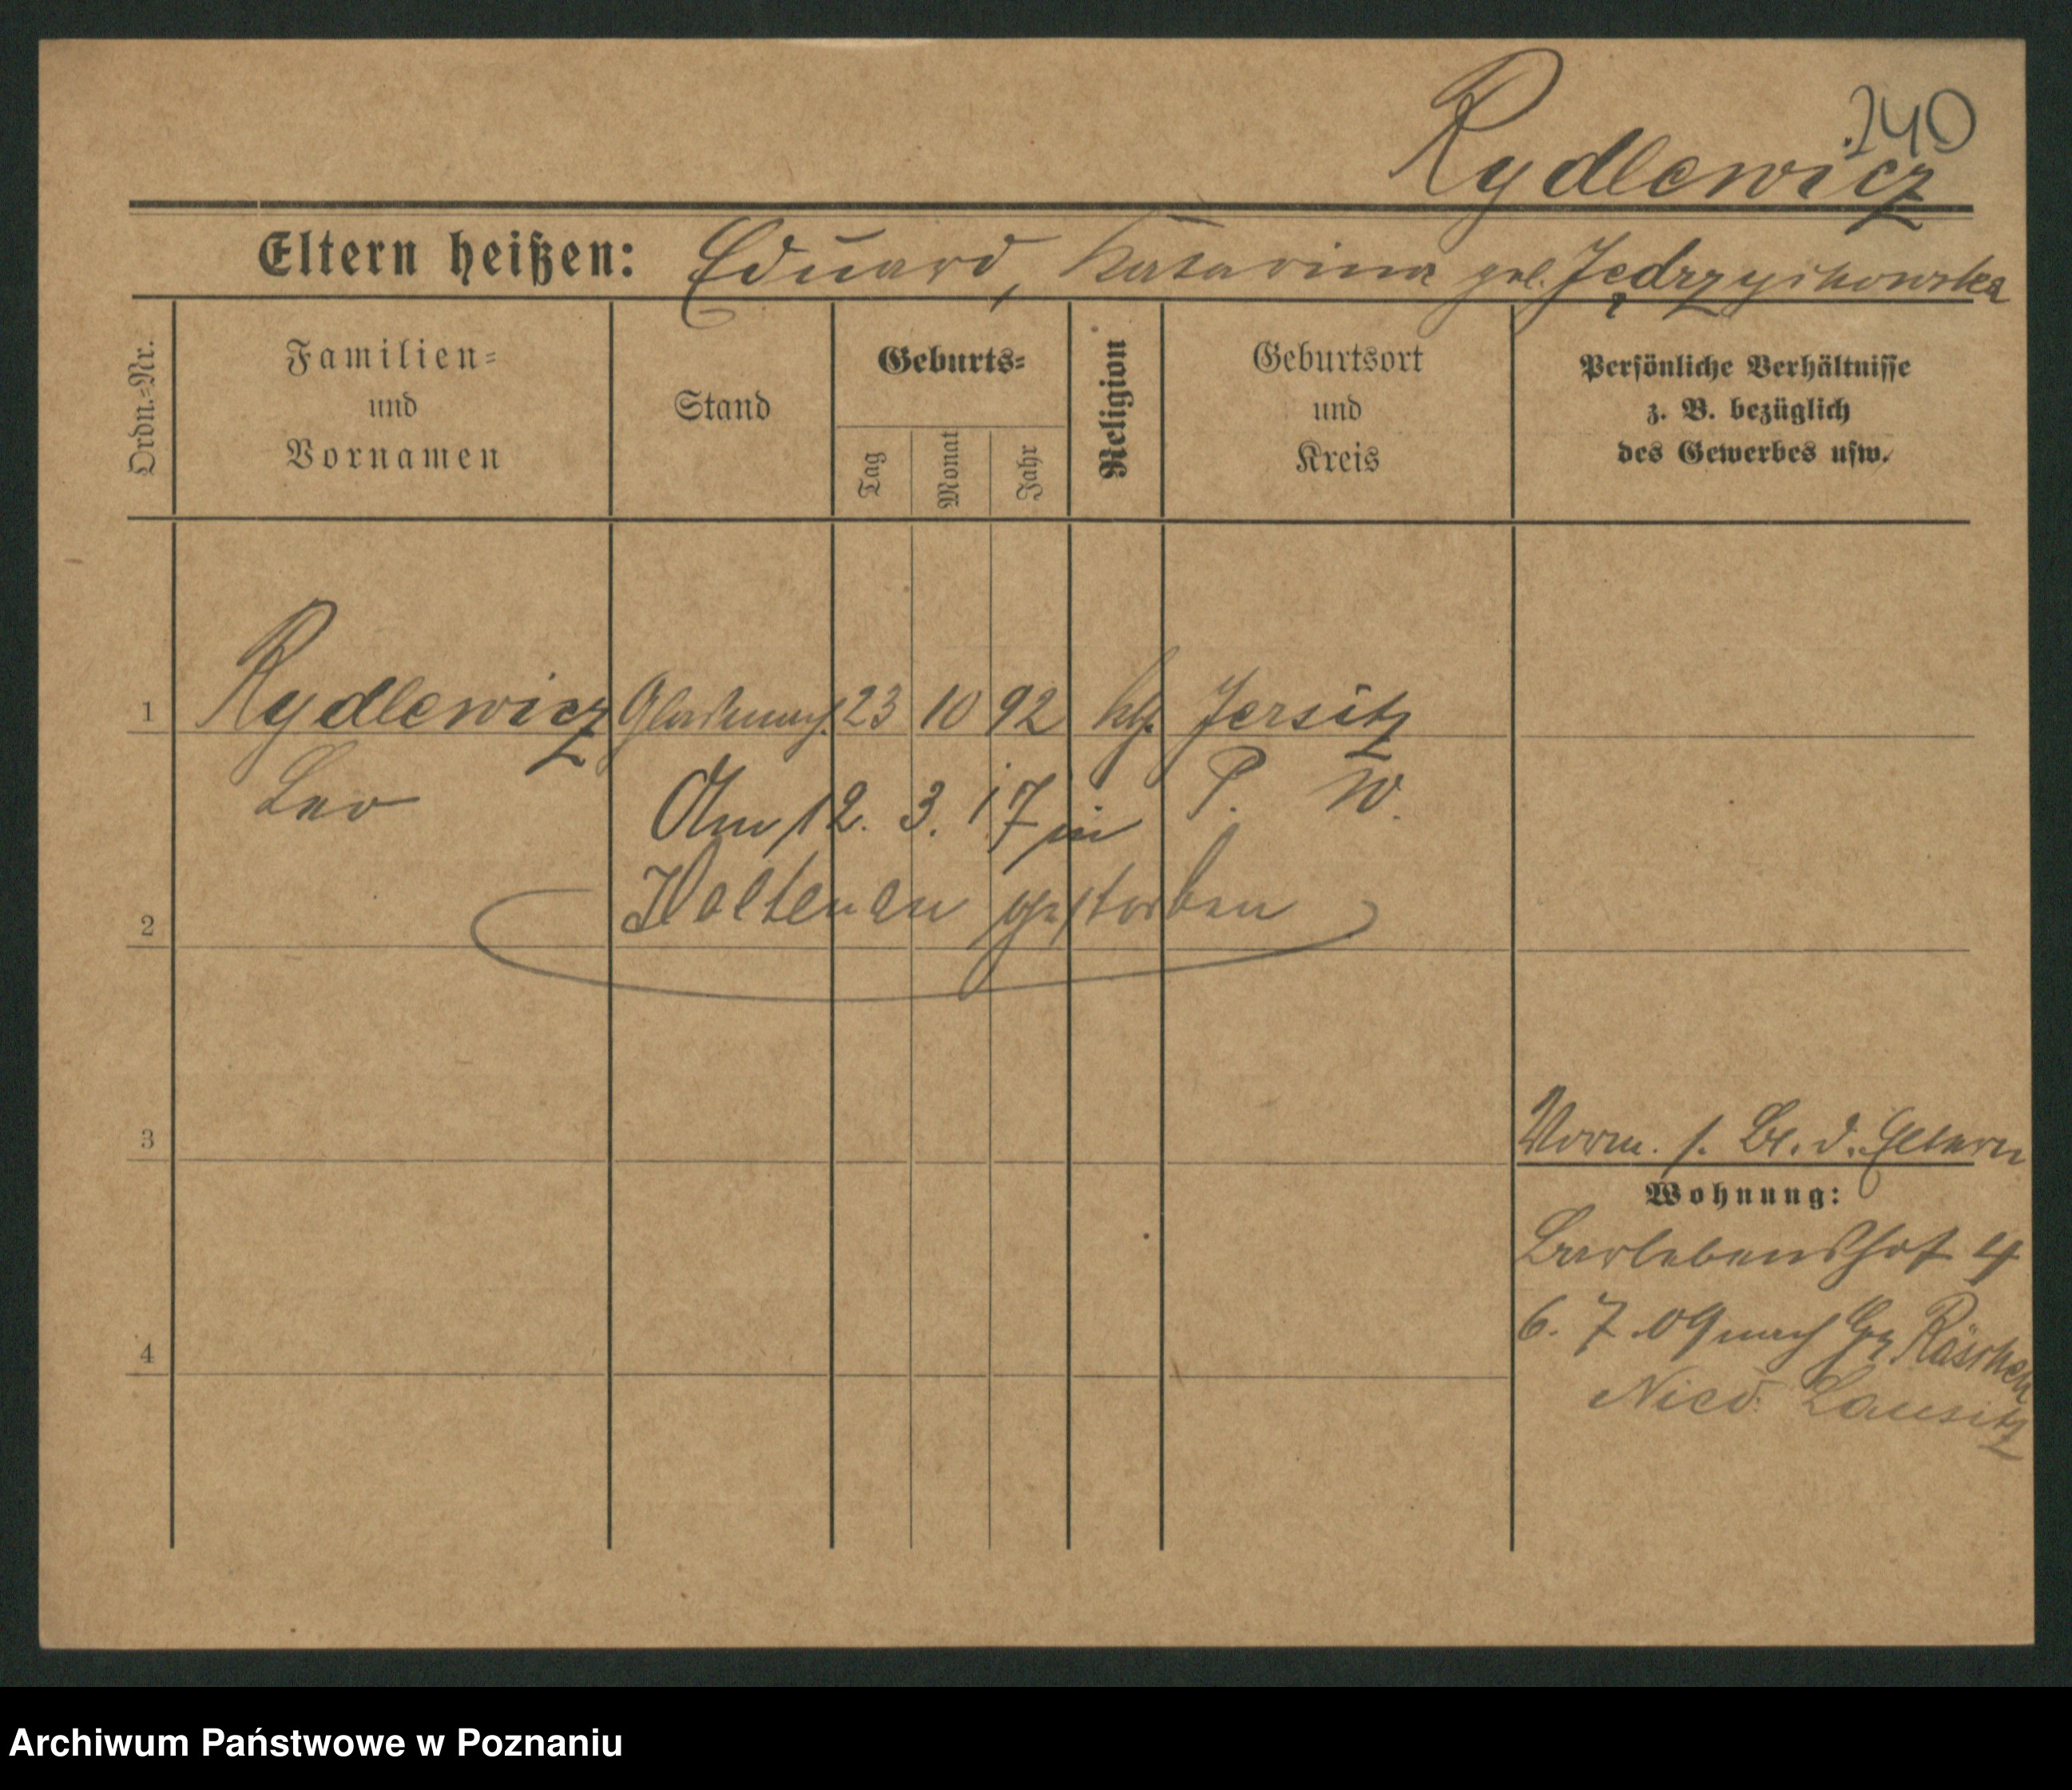 240
Rydlewicz
Eltern heißen: Eduard, Katarina geb.
Ordn.=Nr.
Familien=
und
Vornamen
Stand
Geburts=
Tag
Monat
Jahr
Religion
Geburtsort
und
Kreis
Persönliche Verhältnisse
z. B. bezüglich
des Gewerbes usw.
1 Rydlewicz 23 10 92 kth. Jersitz
Leo P. W.
Am 12. 3. 17 in
gestorben
2
3
Vorm. s. Bl. d. Eltern
Wohnung:
Barlebenshof 4
6. 7. 09 nach Gr. Räschen
Nied. Lausitz
4
Archiwum Państwowe w Poznaniu